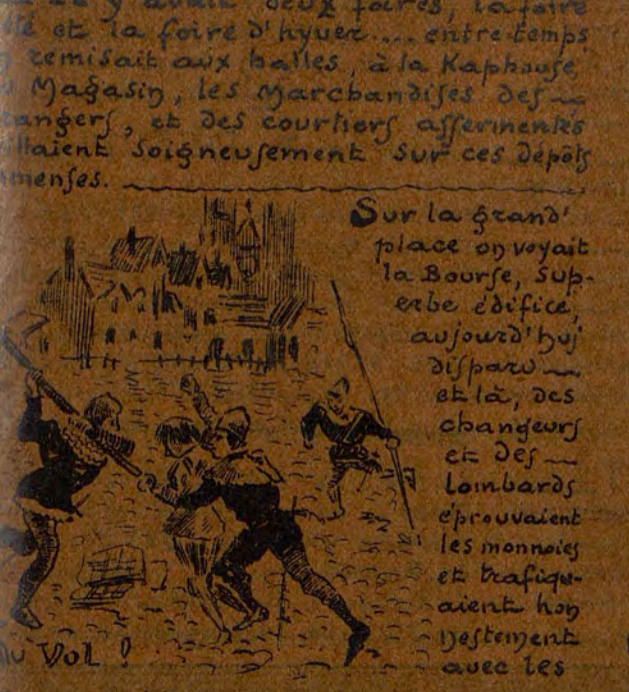 y avait deux foires, la foire
et la foire d'hyver.... entre temps
remisait aux halles, à la Kaphouse,
Magasin, les Marchandises des
rangers, et des courtiers assermentés
illaient soigneusement sur ces dépôts
menses.
Sur la grand'
place on voyait
la Bourse, sup-
erbe édifice,
aujourd'huj
disparu
et là, des
changeurs
et des
lombards
éprouvaient
les monnoies
et trafiqu-
aient hon
nestement
avec les
Au Vol !